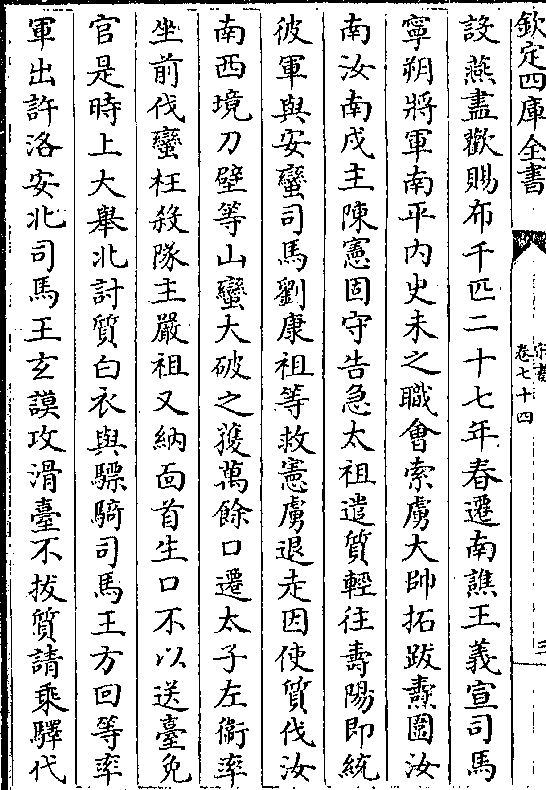 欽定四庫全書
宋書
卷七十四
三
設燕盡歡賜布千匹二十七年春遷南譙王義宣司馬
寧朔將軍南平內史未之職會索虜大帥拓跋燾圍汝
南汝南戍主陳憲固守告急太祖遣質輕往壽陽即統
彼軍與安蠻司馬劉康祖等救憲虜退走因使質伐汝
南西境刀壁等山蠻大破之獲萬餘口遷太子左衞率
坐前伐蠻枉殺隊主嚴祖又納面首生口不以送臺免
官是時上大舉北討質白衣與驃騎司馬王方回等率
軍出許洛安北司馬王玄謨攻滑臺不拔質請乘驛代